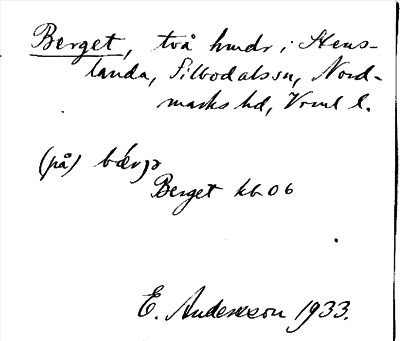 Berget, två hmdr i Stens-
landa, Silbodals sn, Nord-
marks hd, Vrml l.
(på) bærjə
Berget kb 06
E. Andersson 1933.